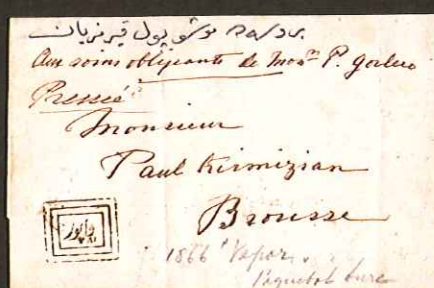 بروسه ده موسیو پول قرمزیان
Aux soins obligeants de Monr P.
Pressée
Monsieur
Paul Kirmizian
Brousse
واپور
1866 Vapor
Paquebot turc